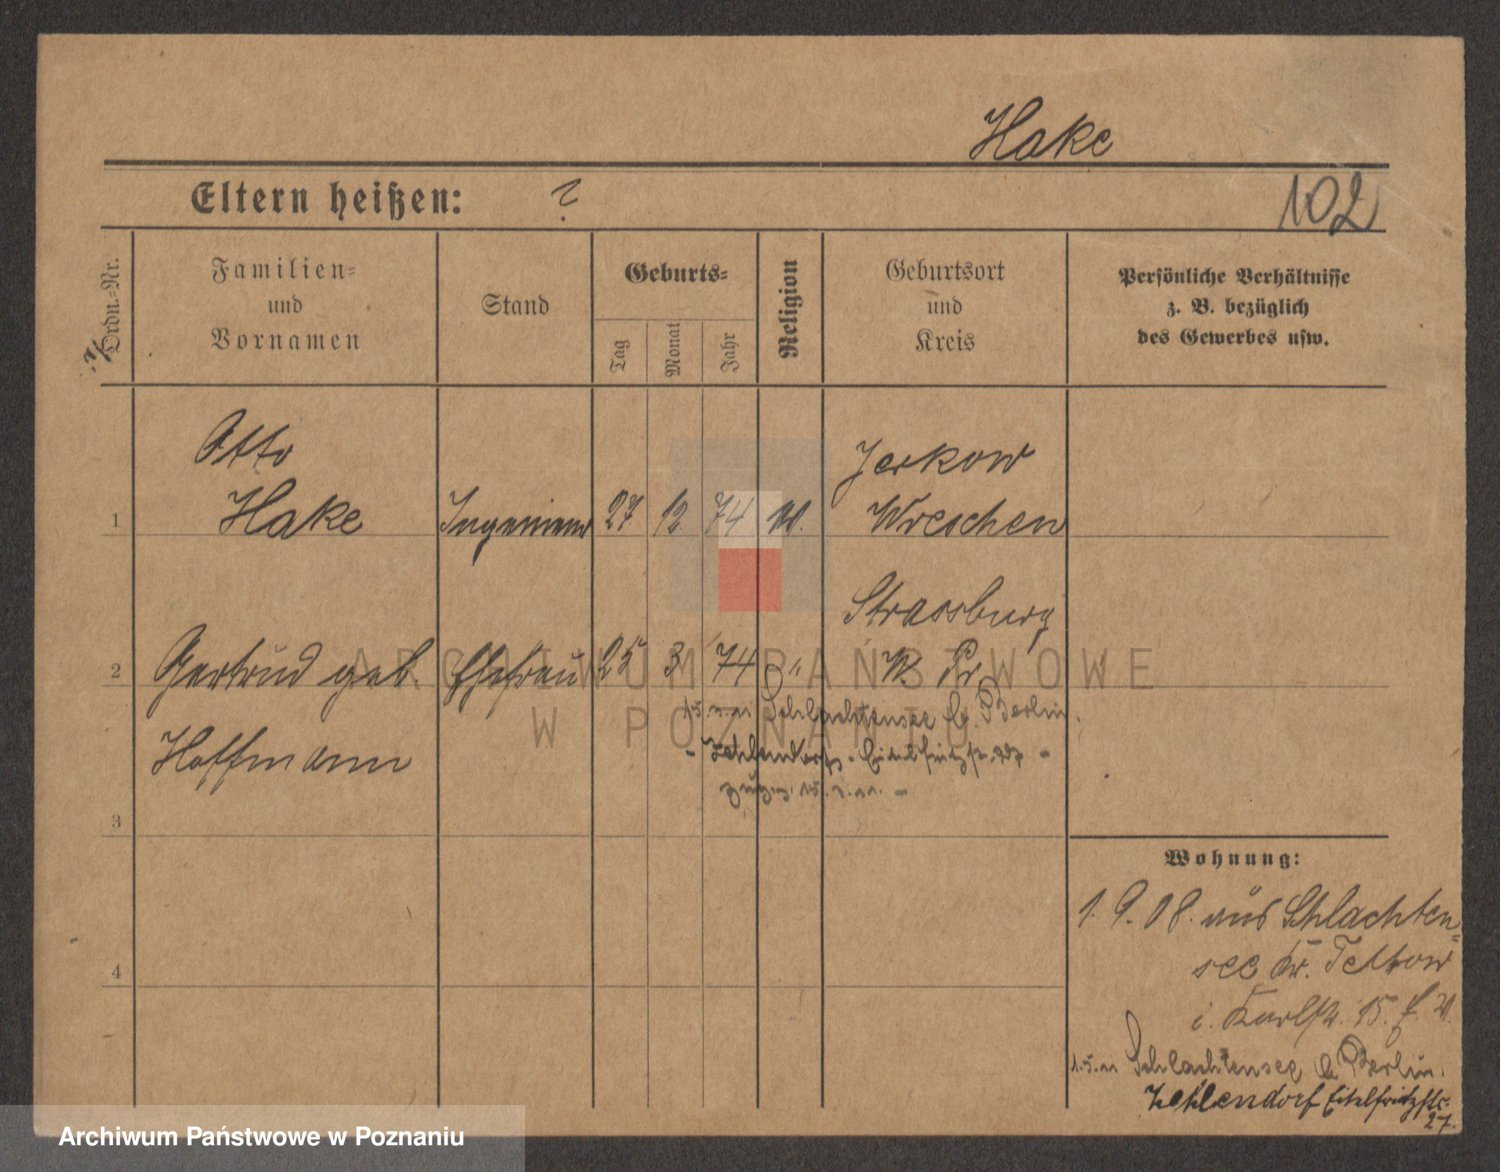 Hake
Eltern heißen: ?
102
Ordn.-Nr.
Familien-
und
Vornamen
Stand
Geburts-
Tag
Monat
Jahr
Religion
Geburtsort
und
Kreis
Persönliche Verhältnisse
z. B. bezüglich
des Gewerbes usw.
Otto Jerkow
1 Hake Ingenieur 27 12 74 Wreschen
Strassburg
2 Gertrud geb. Ehefrau 25 3 74 " W. Pr.
Hoffmann
Schlachtensee b. Berlin.
- Zehlendorf
3
4
Wohnung:
1.9.08. aus Schlachten=
see Kr. Teltow
i. Karlstr. 15.
1.5.11 Schlachtensee b. Berlin.
Zehlendorf Eitelfritzstr.
27.
ARCHIWUM PAŃSTWOWE
W POZNANIU
Archiwum Państwowe w Poznaniu